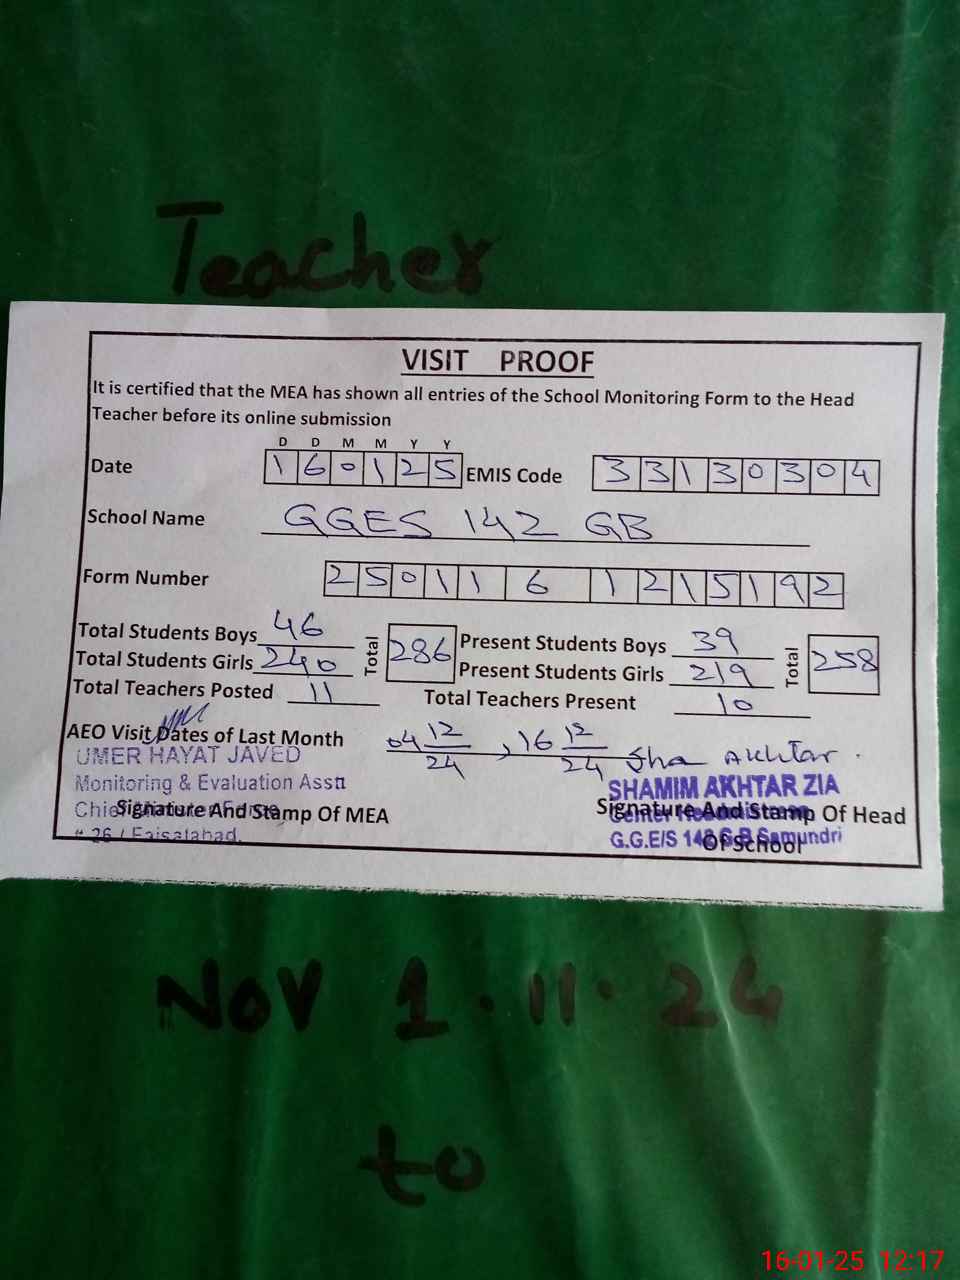 Teacher
VISIT PROOF
It is certified that the MEA has shown all entries of the School Monitoring Form to the Head
Teacher before its online submission
D D M M Y Y
Date 1 6 0 1 2 5 EMIS Code 3 3 1 3 0 3 0 4
School Name GGES 142 GB
Form Number 2 5 0 1 1 6 1 2 1 5 1 9 2
Total Students Boys 46 Total 286 Present Students Boys 39 Total 258
Total Students Girls 240 Present Students Girls 219
Total Teachers Posted 11 Total Teachers Present 10
AEO Visit Dates of Last Month 04 12/24, 16 12/24 Sha Akhtar.
UMER HAYAT JAVED SHAMIM AKHTAR ZIA
Monitoring & Evaluation Asstt
Signature And Stamp Of MEA Signature And Stamp Of Head
Of School
Faisalabad. G.G.E/S 142 G.B Samundri
Nov 1.11.24
to
16-01-25 12:17